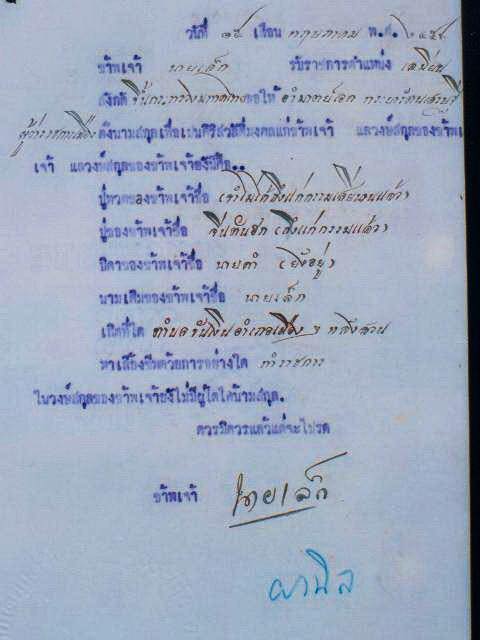 วันที่ ๑๕ เดือน พฤษภาคม พ.ศ. ๒๔๕๘
ข้าพเจ้า นายเล็ก รับราชการตำแหน่ง เสมียน
สังกัด ขอให้ อำมาตย์เอก
ผู้ว่าราชการเมือง ตั้งนามสกุลเพื่อเปนศิริสวัสดิ์มงคลแก่ข้าพเจ้า แลวงษ์สกุลของข้าพเจ้า
เจ้า แลวงษ์สกุลของข้าพเจ้ายังมีคือ..
ปู่ทวดของข้าพเจ้าชื่อ (จำไม่ได้ถึงแก่กรรมเสียนานแล้ว)
ปู่ของข้าพเจ้าชื่อ (ถึงแก่กรรมแล้ว)
บิดาของข้าพเจ้าชื่อ นายดำ (ยังอยู่)
นามเดิมของข้าพเจ้าชื่อ นายเล็ก
เกิดที่ใด ตำบล อำเภอเมือง ฯ หลังสวน
หาเลี้ยงชีพด้วยการอย่างใด ทำราชการ
ในวงษ์สกุลของข้าพเจ้ายังไม่มีผู้ใดได้นามสกุล.
ควรมิควรแล้วแต่จะโปรด
ข้าพเจ้า นายเล็ก
ผานิล